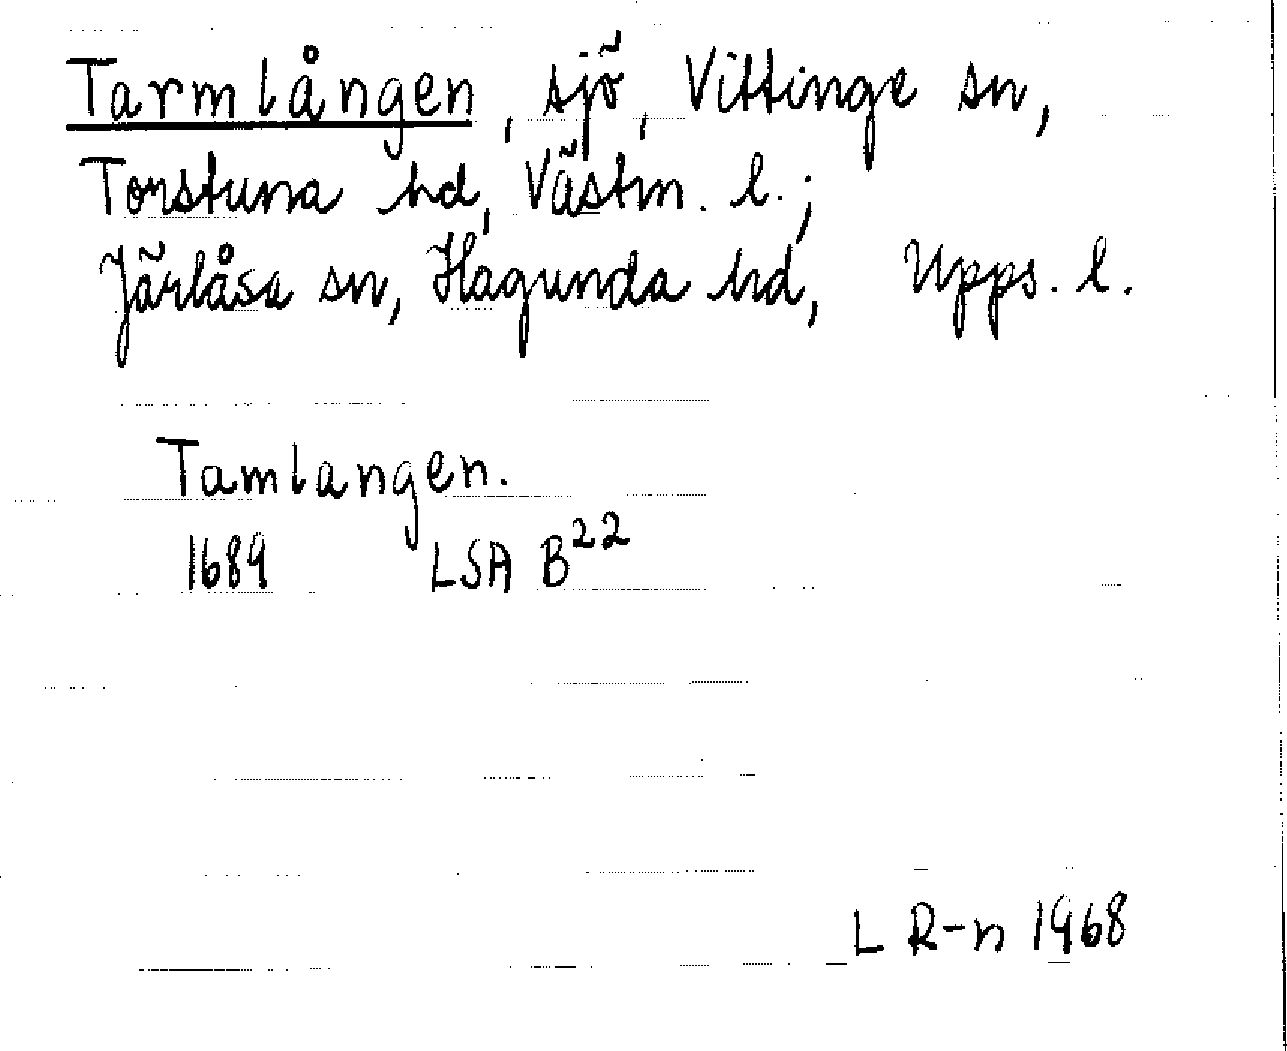 Tarmlången, sjö, Vittinge sn,
Torstuna hd, Västm. l.;
Järlåsa sn, Hagunda hd, Upps. l.
Tamlangen.
1689 LSA B²²
L R-n 1968